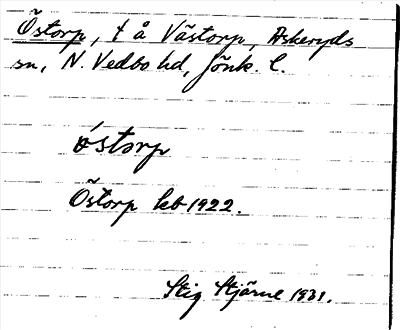 Östorp, t å Västorp, Askeryds
sn, N. Vedbo hd, Jönk. l.
östərp
Östorp kb 1922.
Stig Stjärne 1931.